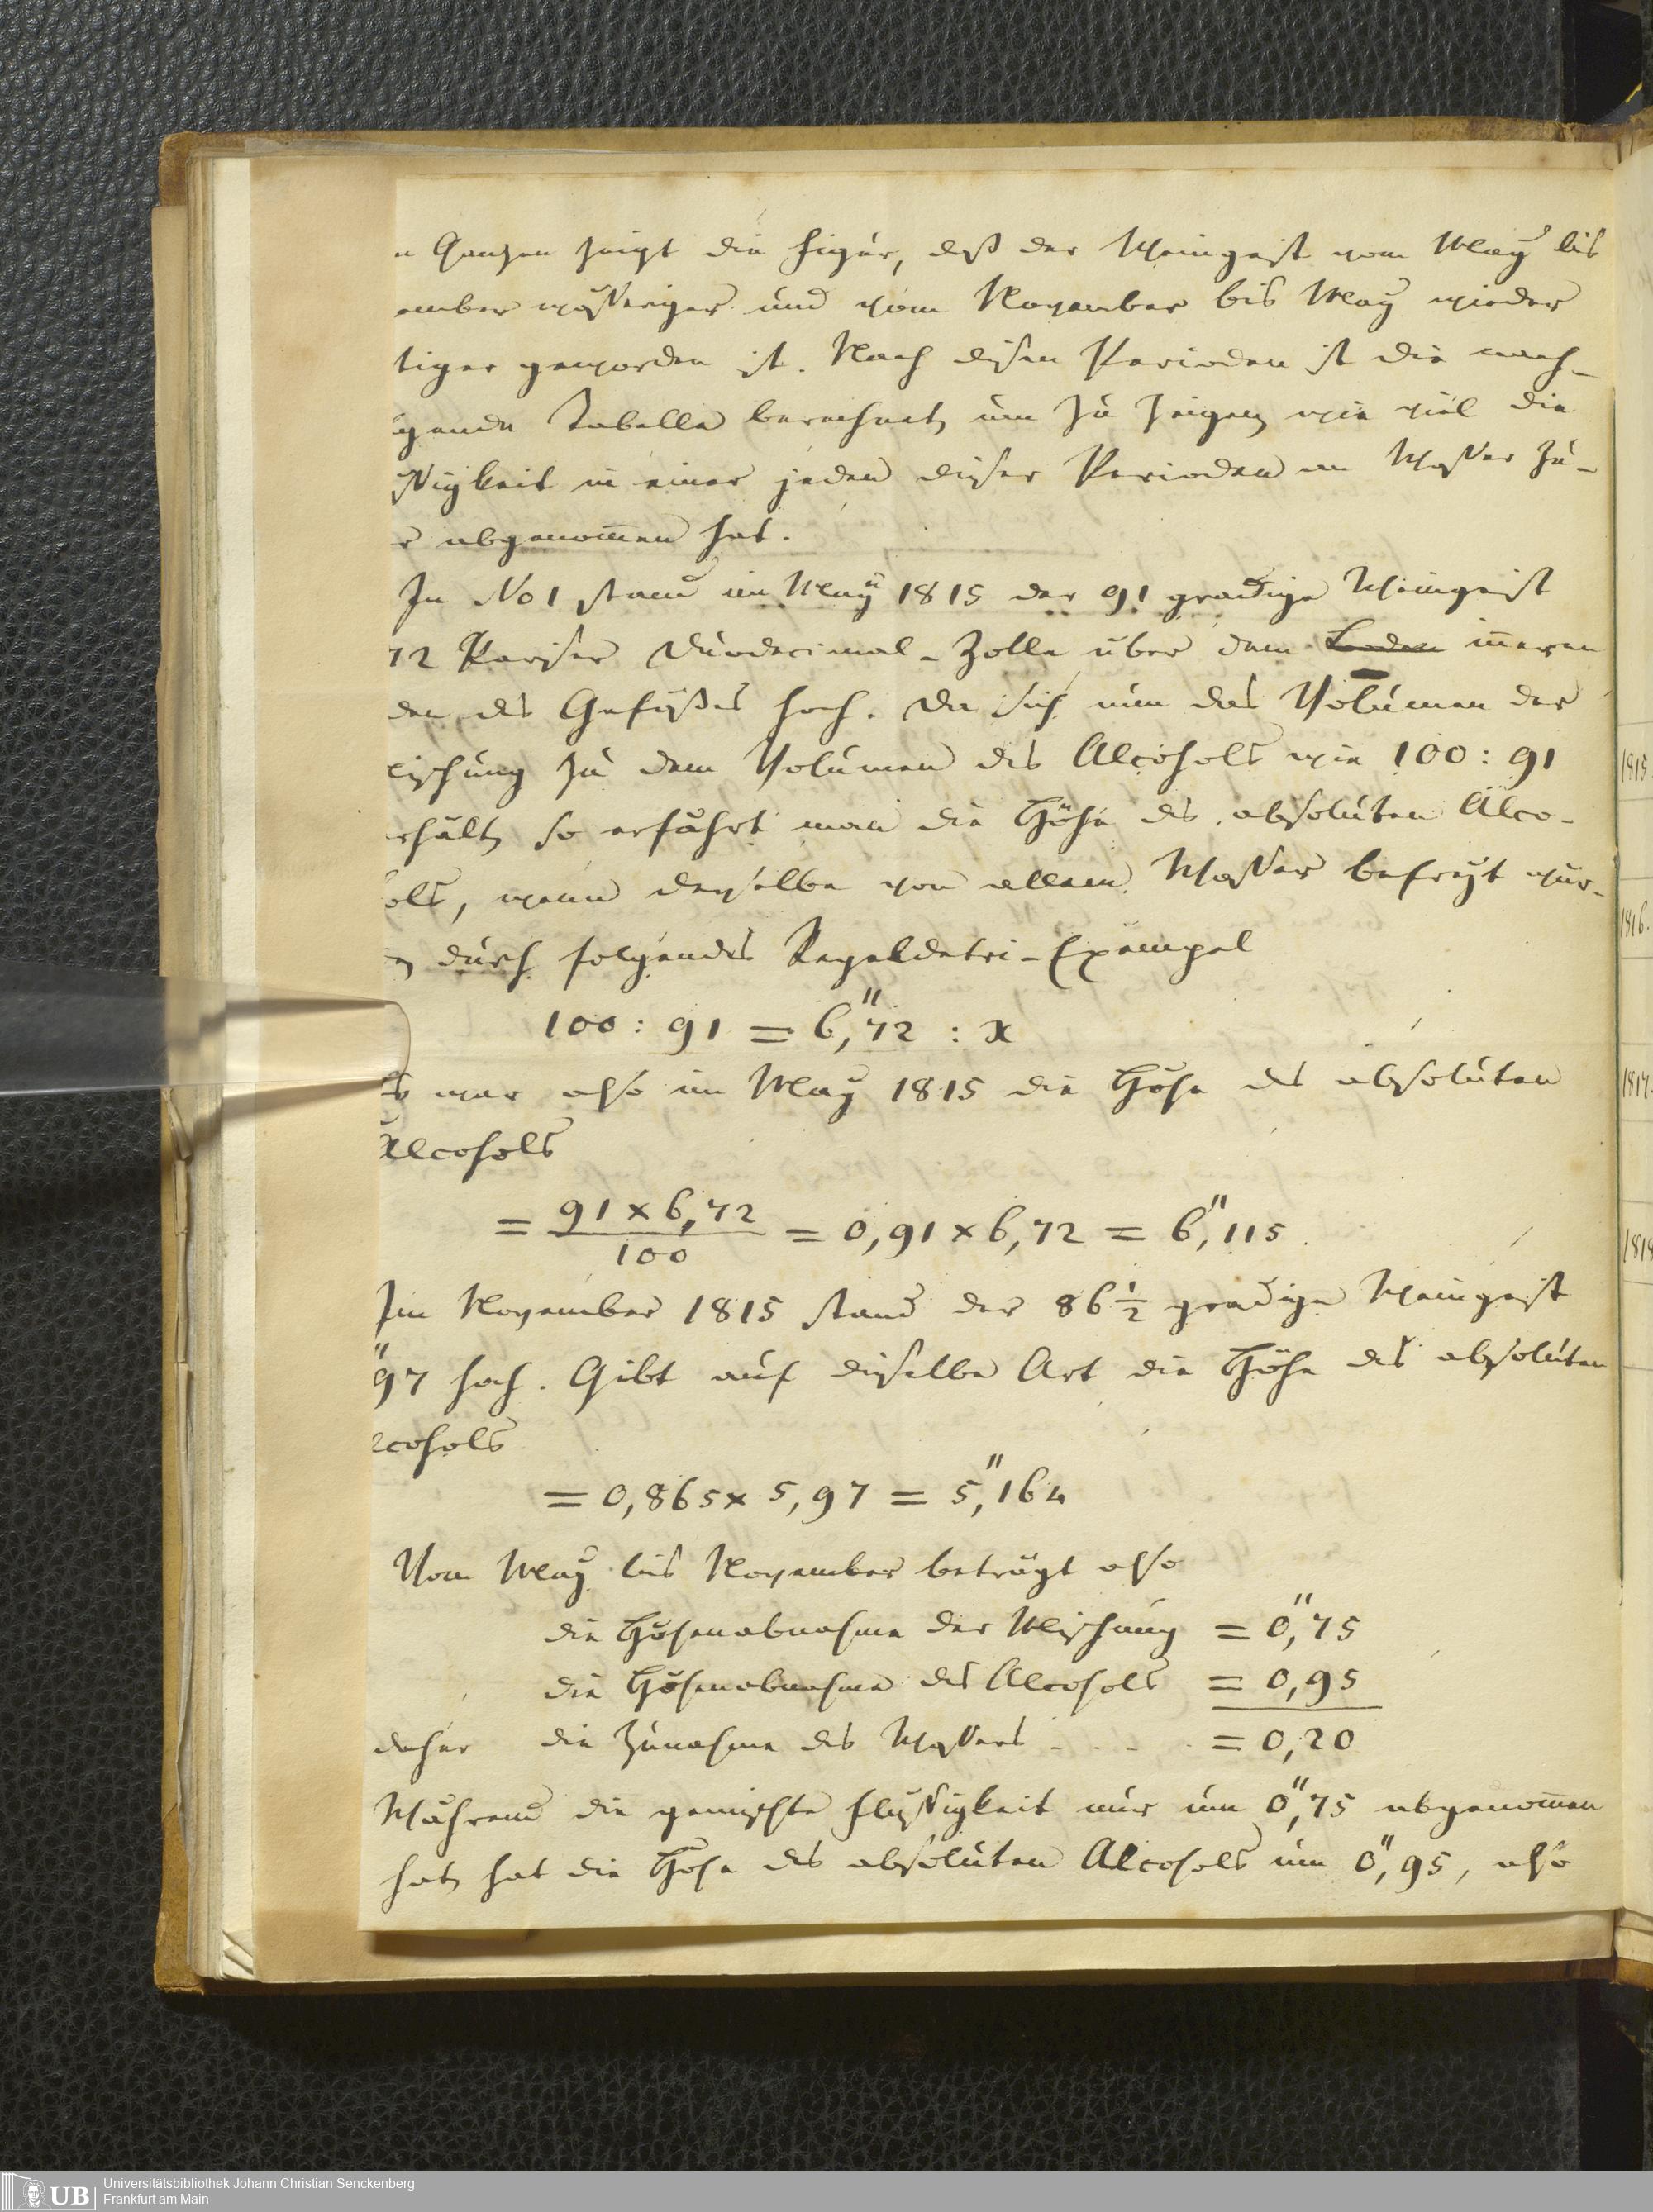 n Ganzen zeigt die Figur, daß der Weingeist vom May bis
ember wäßeriger und vom November bis May wieder
tiger geworden ist. Nach diesen Perioden ist die nach-
gende Tabelle berechnet, um zu zeigen, wie viel die
ßigkeit in einer jeden dieser Perioden an Waßer zu-
r abgenom̄en hat.
In No 1 stand im May 1815 der 91 gradige Weingeist
72 Pariser Duodecimal-Zolle über dem Boden in̄eren
den des Gefäßes hoch. Da sich nun das Volumen der
ischung zu dem Volumen des Alcohols wie 100 : 91
rhält, so erfährt man die Höhe des absoluten Alco-
ols, wenn derselbe von allem Waßer befreyt wür-
durch folgendes Regeldetri-Exempel
100 : 91 = 6,"72 : x
s war also im May 1815 die Höhe des absoluten
Alcohols
= 91 x 6,72 / 100 = 0,91 x 6,72 = 6,"115
Im November 1815 stand der 86 1/2 gradige Weingeist
"97 hoch. Gibt auf dieselbe Art die Höhe des absoluten
lcohols
= 0,865 x 5,97 = 5,"164
Vom May bis November beträgt also
die Höhenabnahme der Mischung = 0,"75
die Höhenabnahme des Alcohols = 0,95
daher die Zunahme des Waßers - . . - . = 0,20
Während die gemischte Flüßigkeit nur um 0,"75 abgenom̄en
hat, hat die Höhe des absoluten Alcohols um 0,"95, also
1815
1816.
1817.
1818
UB Universitätsbibliothek Johann Christian Senckenberg
Frankfurt am Main